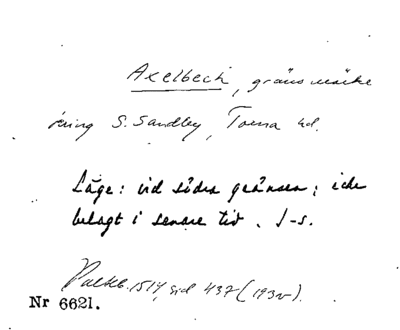 Axelbeck, gränsmärke
kring S. Sandby, Torna hd.
Läge: vid södra gränsen; icke
belagt i senare tid. J-s.
1514, sid 437 (1932).
Nr 6621.